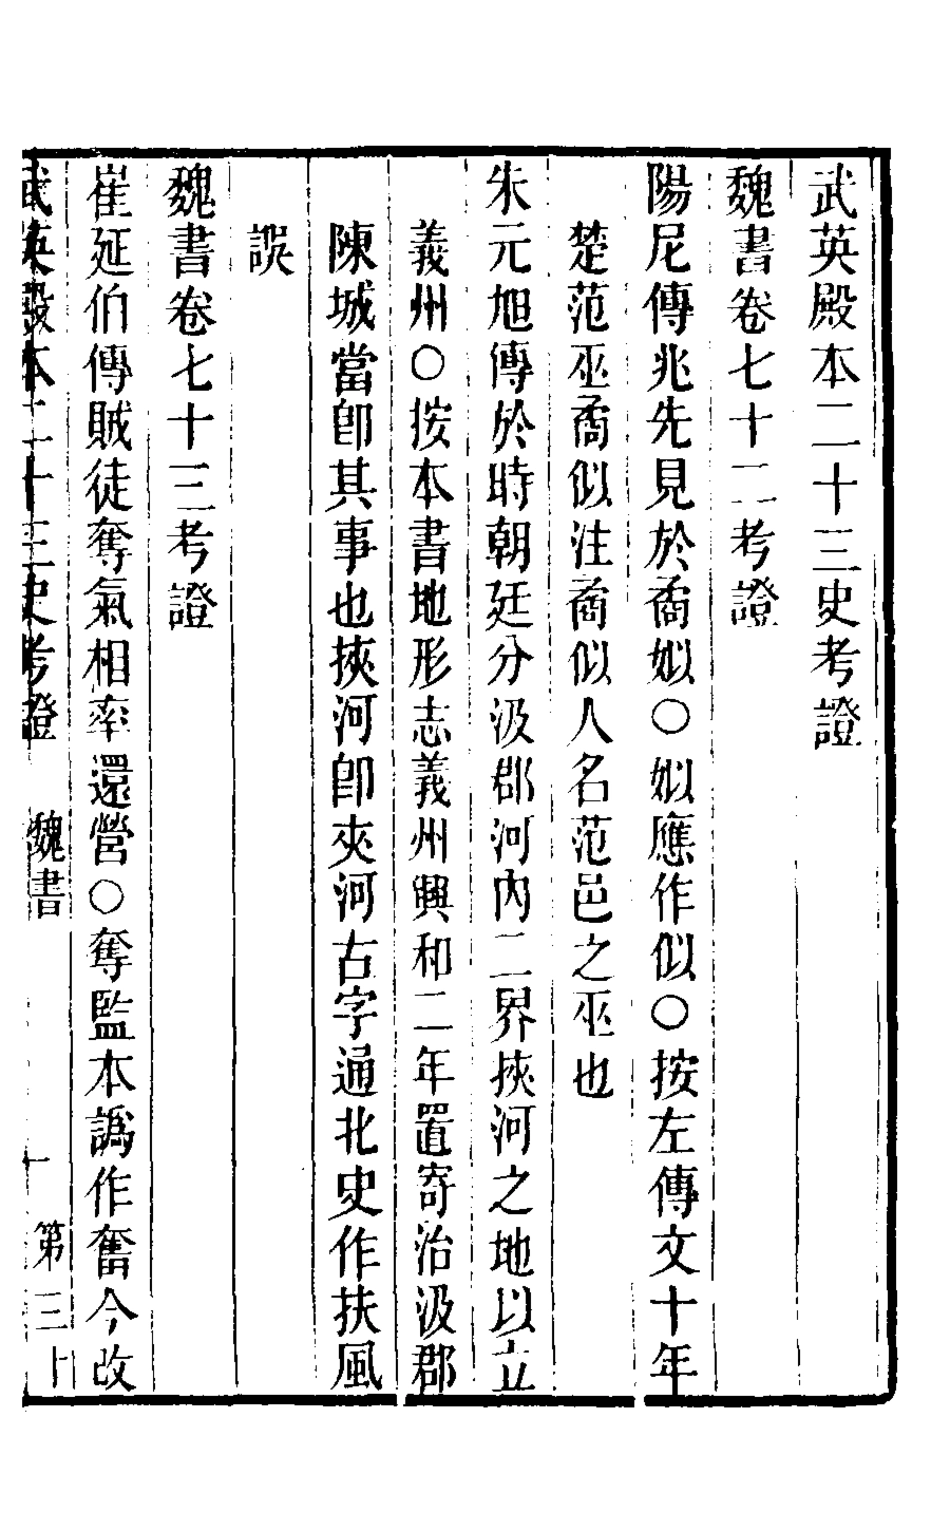 武英殿本二十三史考證
魏書卷七十二考證
陽尼傳兆先見於矞姒○姒應作似○按左傳文十年
楚范巫矞似注矞似人名范邑之巫也
朱元旭傳於時朝廷分汲郡河內二界挾河之地以立
義州○按本書地形志義州興和二年置寄治汲郡
陳城當卽其事也挾河卽夾河古字通北史作扶風
誤
魏書卷七十三考證
崔延伯傳賊徒奪氣相率還營○奪監本譌作奮今改
武英殿本二十三史考證 魏書 一 第三十